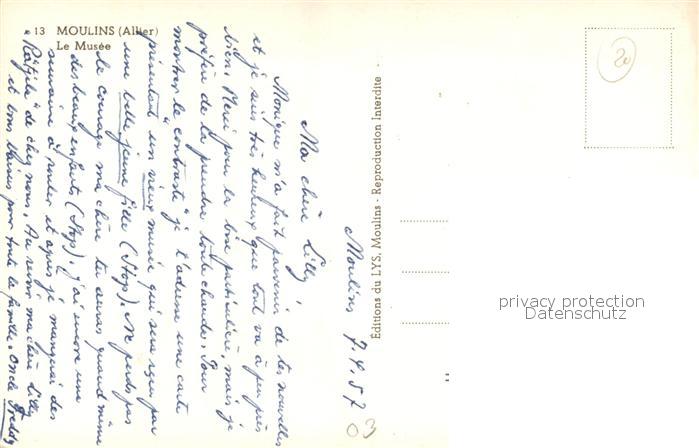 13 MOULINS (Allier)
Le Musée
Moulins 7.4.57
Ma chère Lilly,
Monique m'a fait parvenir de tes nouvelles
et je suis très heureux que tout va à peu près
bien. Merci pour la bise particulière, mais je
préfère de la prendre toute chaude. Pour
montrer le "contraste" je t'adresse une carte
présentant un vieux musée qui sera reçu par
une belle jeune fille (Stop). Ne perds pas
le courage ma chère tu auras quand même
des beaux enfants (Stop). J'ai encore une
semaine à rouler et après je mangerai des
"Rätzele" de chez nous. Au revoir ma chère Lilly
et bons baisers pour toute la famille. Oncle Freddy
Éditions du LYS, Moulins - Reproduction Interdite
20
03
privacy protection
Datenschutz